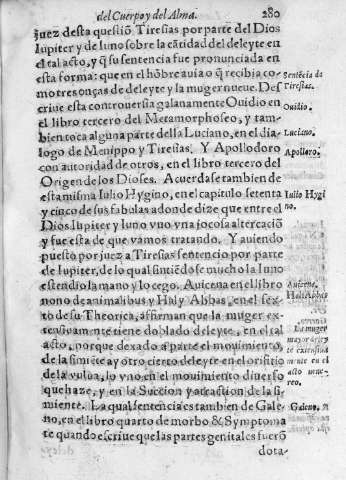 del Cuerpo y del Alma.
280
juez desta questiõ Tiresias por parte del Dios
Iupiter y de Iuno sobre la cãtidad del deleyte en
el tal acto, y q̃ su sentencia fue pronunciada en
esta forma: que en el hõbre auia o q̃ recibia co
mo tres onças de deleyte y la muger nueue. Des
criue esta controuersia galanamente Ouidio en
el libro tercero del Metamorphoseo, y tam-
bien toca alguna parte della Luciano, en el dia-
logo de Menippo y Tiresias. Y Apollodoro
con autoridad de otros, en el libro tercero del
Origen de los Dioses. Acuerdase tambien de
esta misma Iulio Hygino, en el capitulo setenta
y cinco de sus fabulas adonde dize que entre el
Dios Iupiter y Iuno vuo vna jocosa altercaciõ
y fue esta de que vamos tratando. Y auiendo
puesto por juez a Tiresias sentencio por parte
de Iupiter, de lo qual sintiẽdose mucho la Iuno
estendio la mano y lo cego. Auicena en el libro
nono de animalibus y Haly Abbas, en el sex-
to de su Theorica, affirman que la muger ex-
tensiuamente tiene doblado deleyte, en el tal
acto, porque dexado a parte el mouimiento,
de la simiẽte ay otro cierto deleyte en el orificio
de la vulua, lo vno en el mouimiento diuerso
que haze, y en la Succion y atraction de la si-
miente. La qual sentencia es tambien de Gale-
no, en el libro quarto de morbo & Symptoma
te quando escriue que las partes genitales fuerõ
dota-
Sentẽcia de
Tiresias.
Ouidio.
Luciano.
Apolloro.
Iulio Hygi
no.
Auicena.
Hali Abbas
La muger
te extensiua
mente en el
acto vene-
reo.
Galeno.